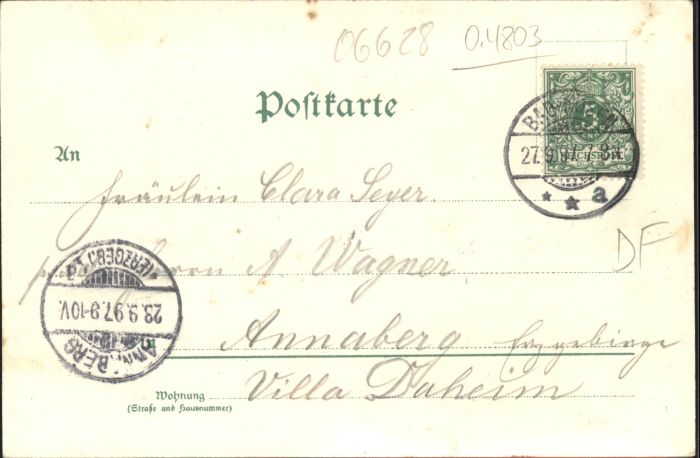 06628
0.4803
Postkarte
5
REICHSPOST
27.9.97.7-8
a
An
Fräulein Clara Seyer.
Herrn A Wagner
DF
ANNABERG
28.9.97.9-10V.
(ERZGEB.)
Annaberg Erzgebirge
Villa Daheim
Wohnung
(Straße und Hausnummer)